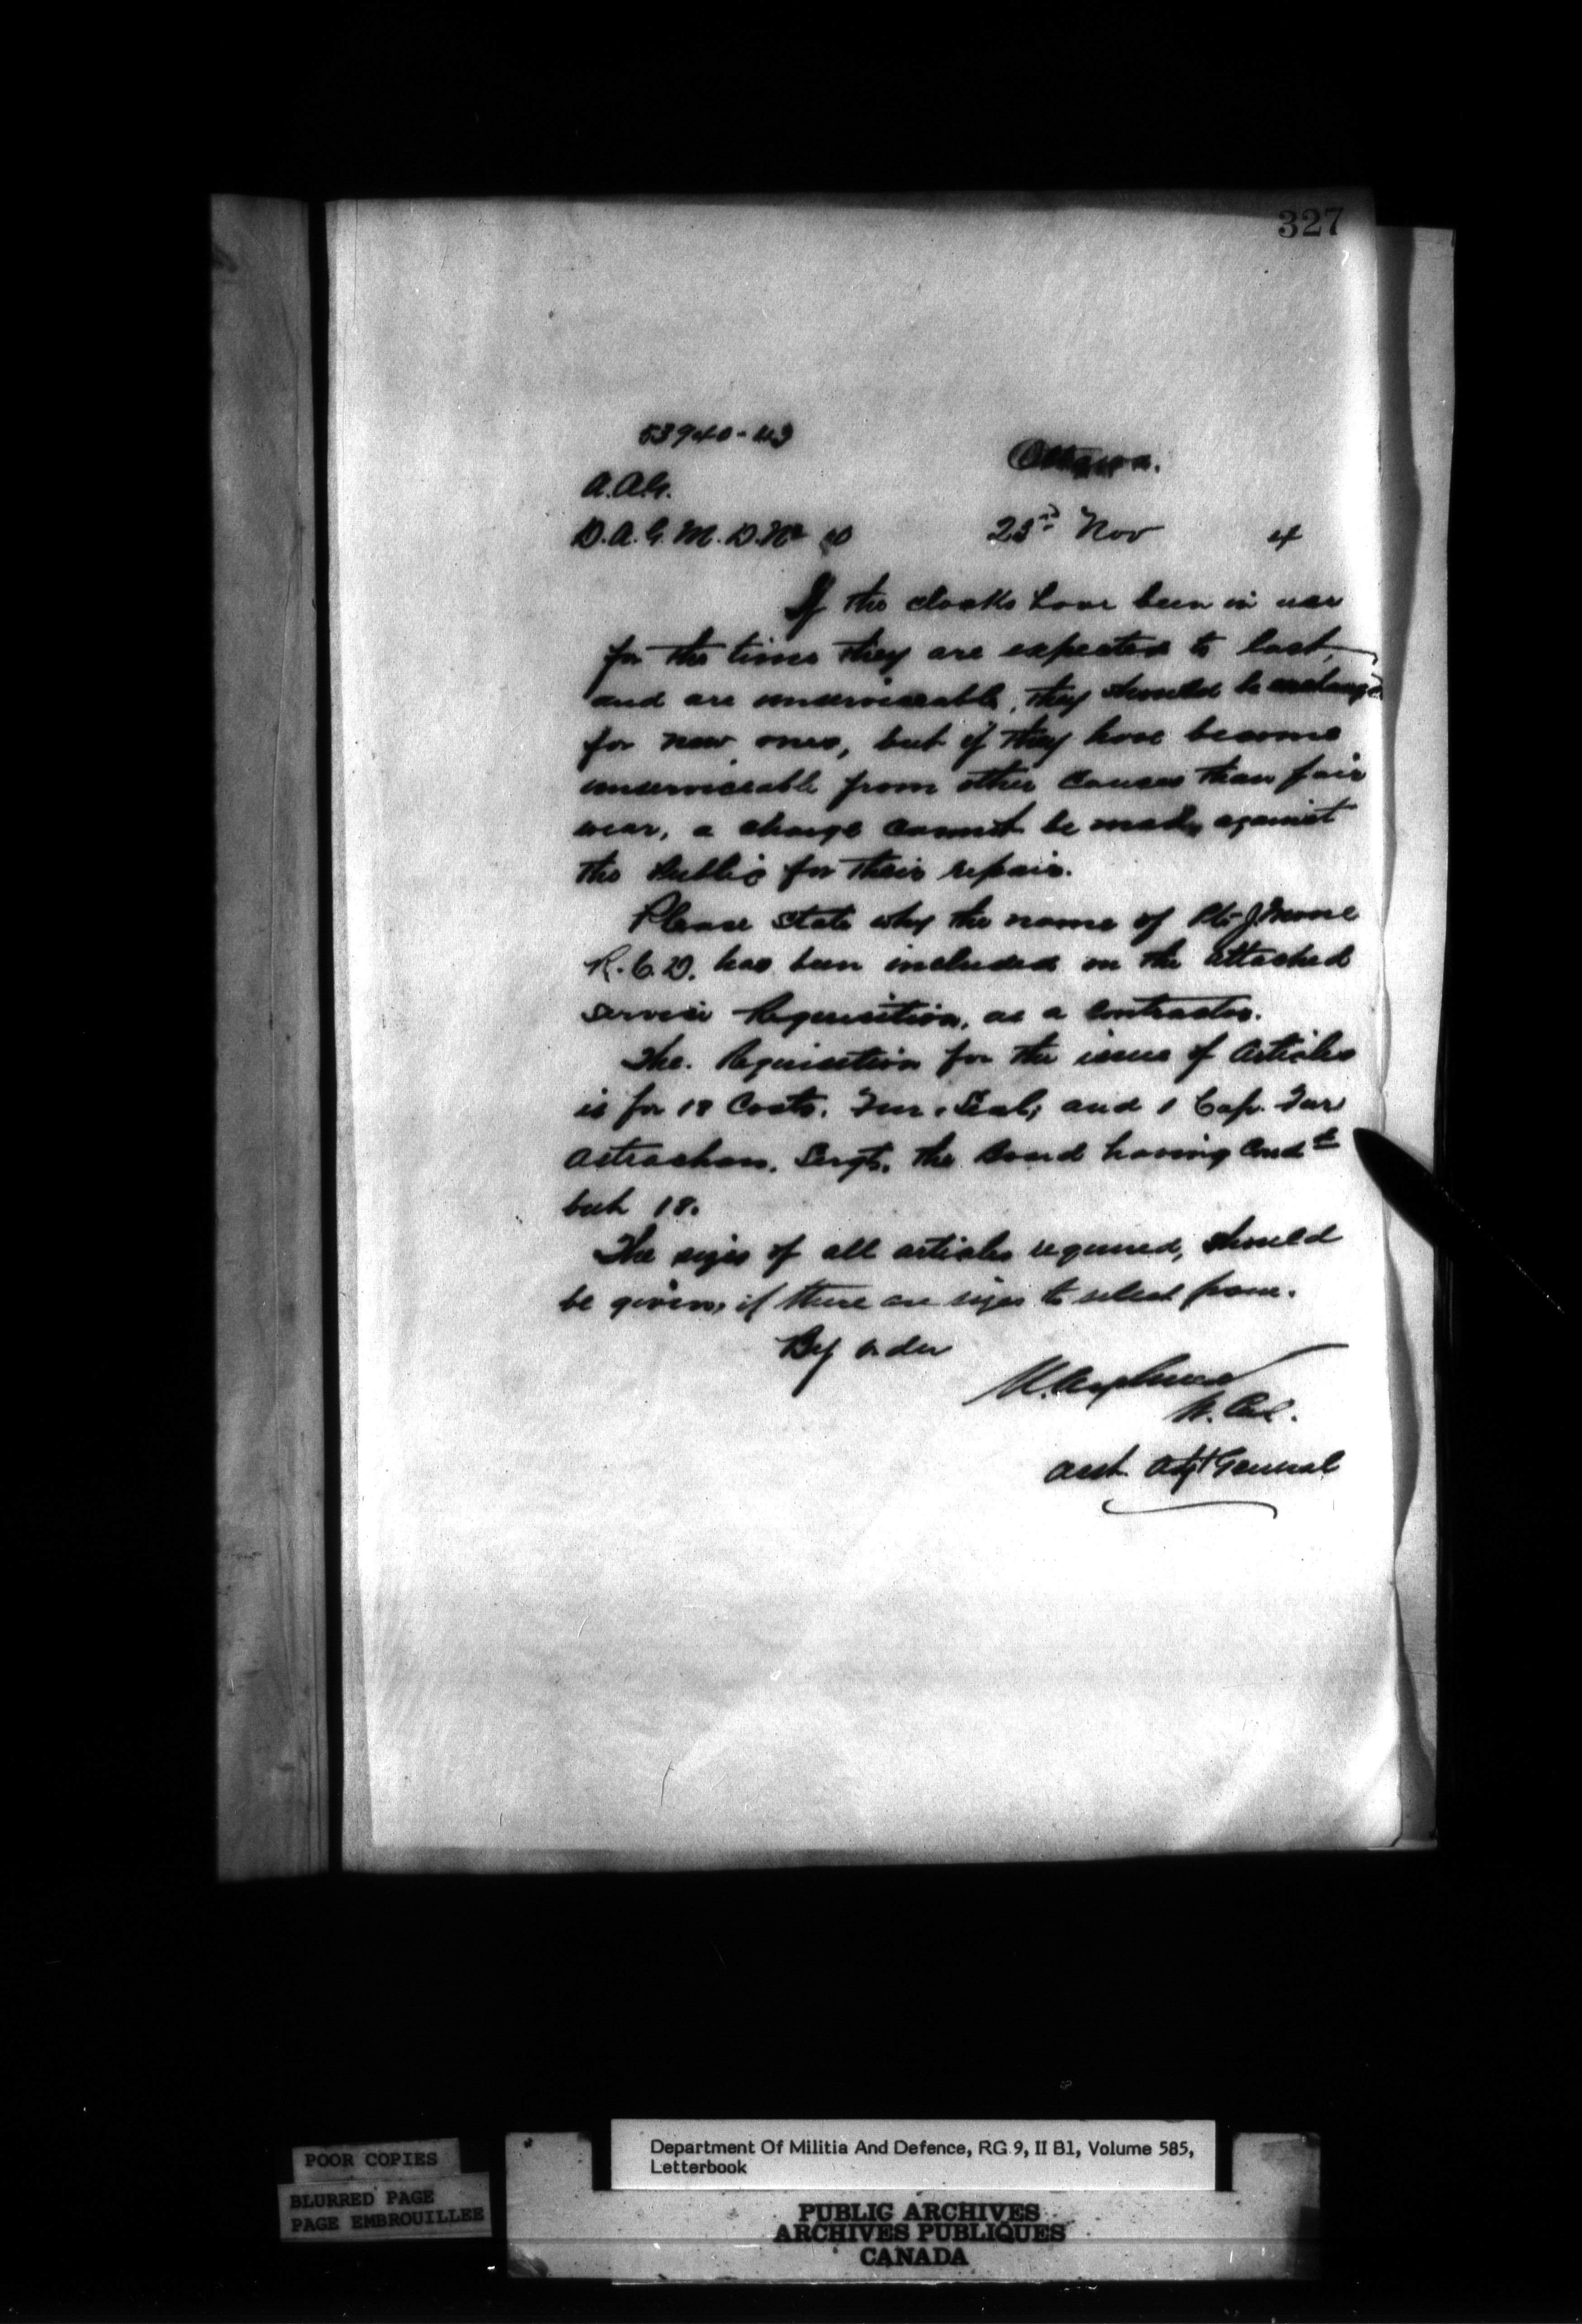 327
53940-
Ottawa.
A.A.G.
D.A.G. M.D. No 10 23rd Nov 4
If the cloaks have been in use
for the time they are expected to last,
and are unserviceable, they should be exchanged
for new ones, but if they have become
unserviceable from other causes than fair
wear, a charge cannot be made against
the Public for their repair.
Please state why the name of Pte J.
R.C.D. has been included on the attached
Service Requisition, as a contractor.
The Requisition for the issue of Articles
is for 18 Coats, Fur, Seal, and 1 Cap. Fur
Astrachan, Sergt, the Board having Condd
but 18.
The sizes of all articles required, should
be given, if there are sizes to select from.
By order
Lt. Col.
Asst Adjt General
POOR COPIES
BLURRED PAGE
PAGE EMBROUILLEE
Department Of Militia And Defence, RG 9, II B1, Volume 585,
Letterbook
PUBLIC ARCHIVES
ARCHIVES PUBLIQUES
CANADA